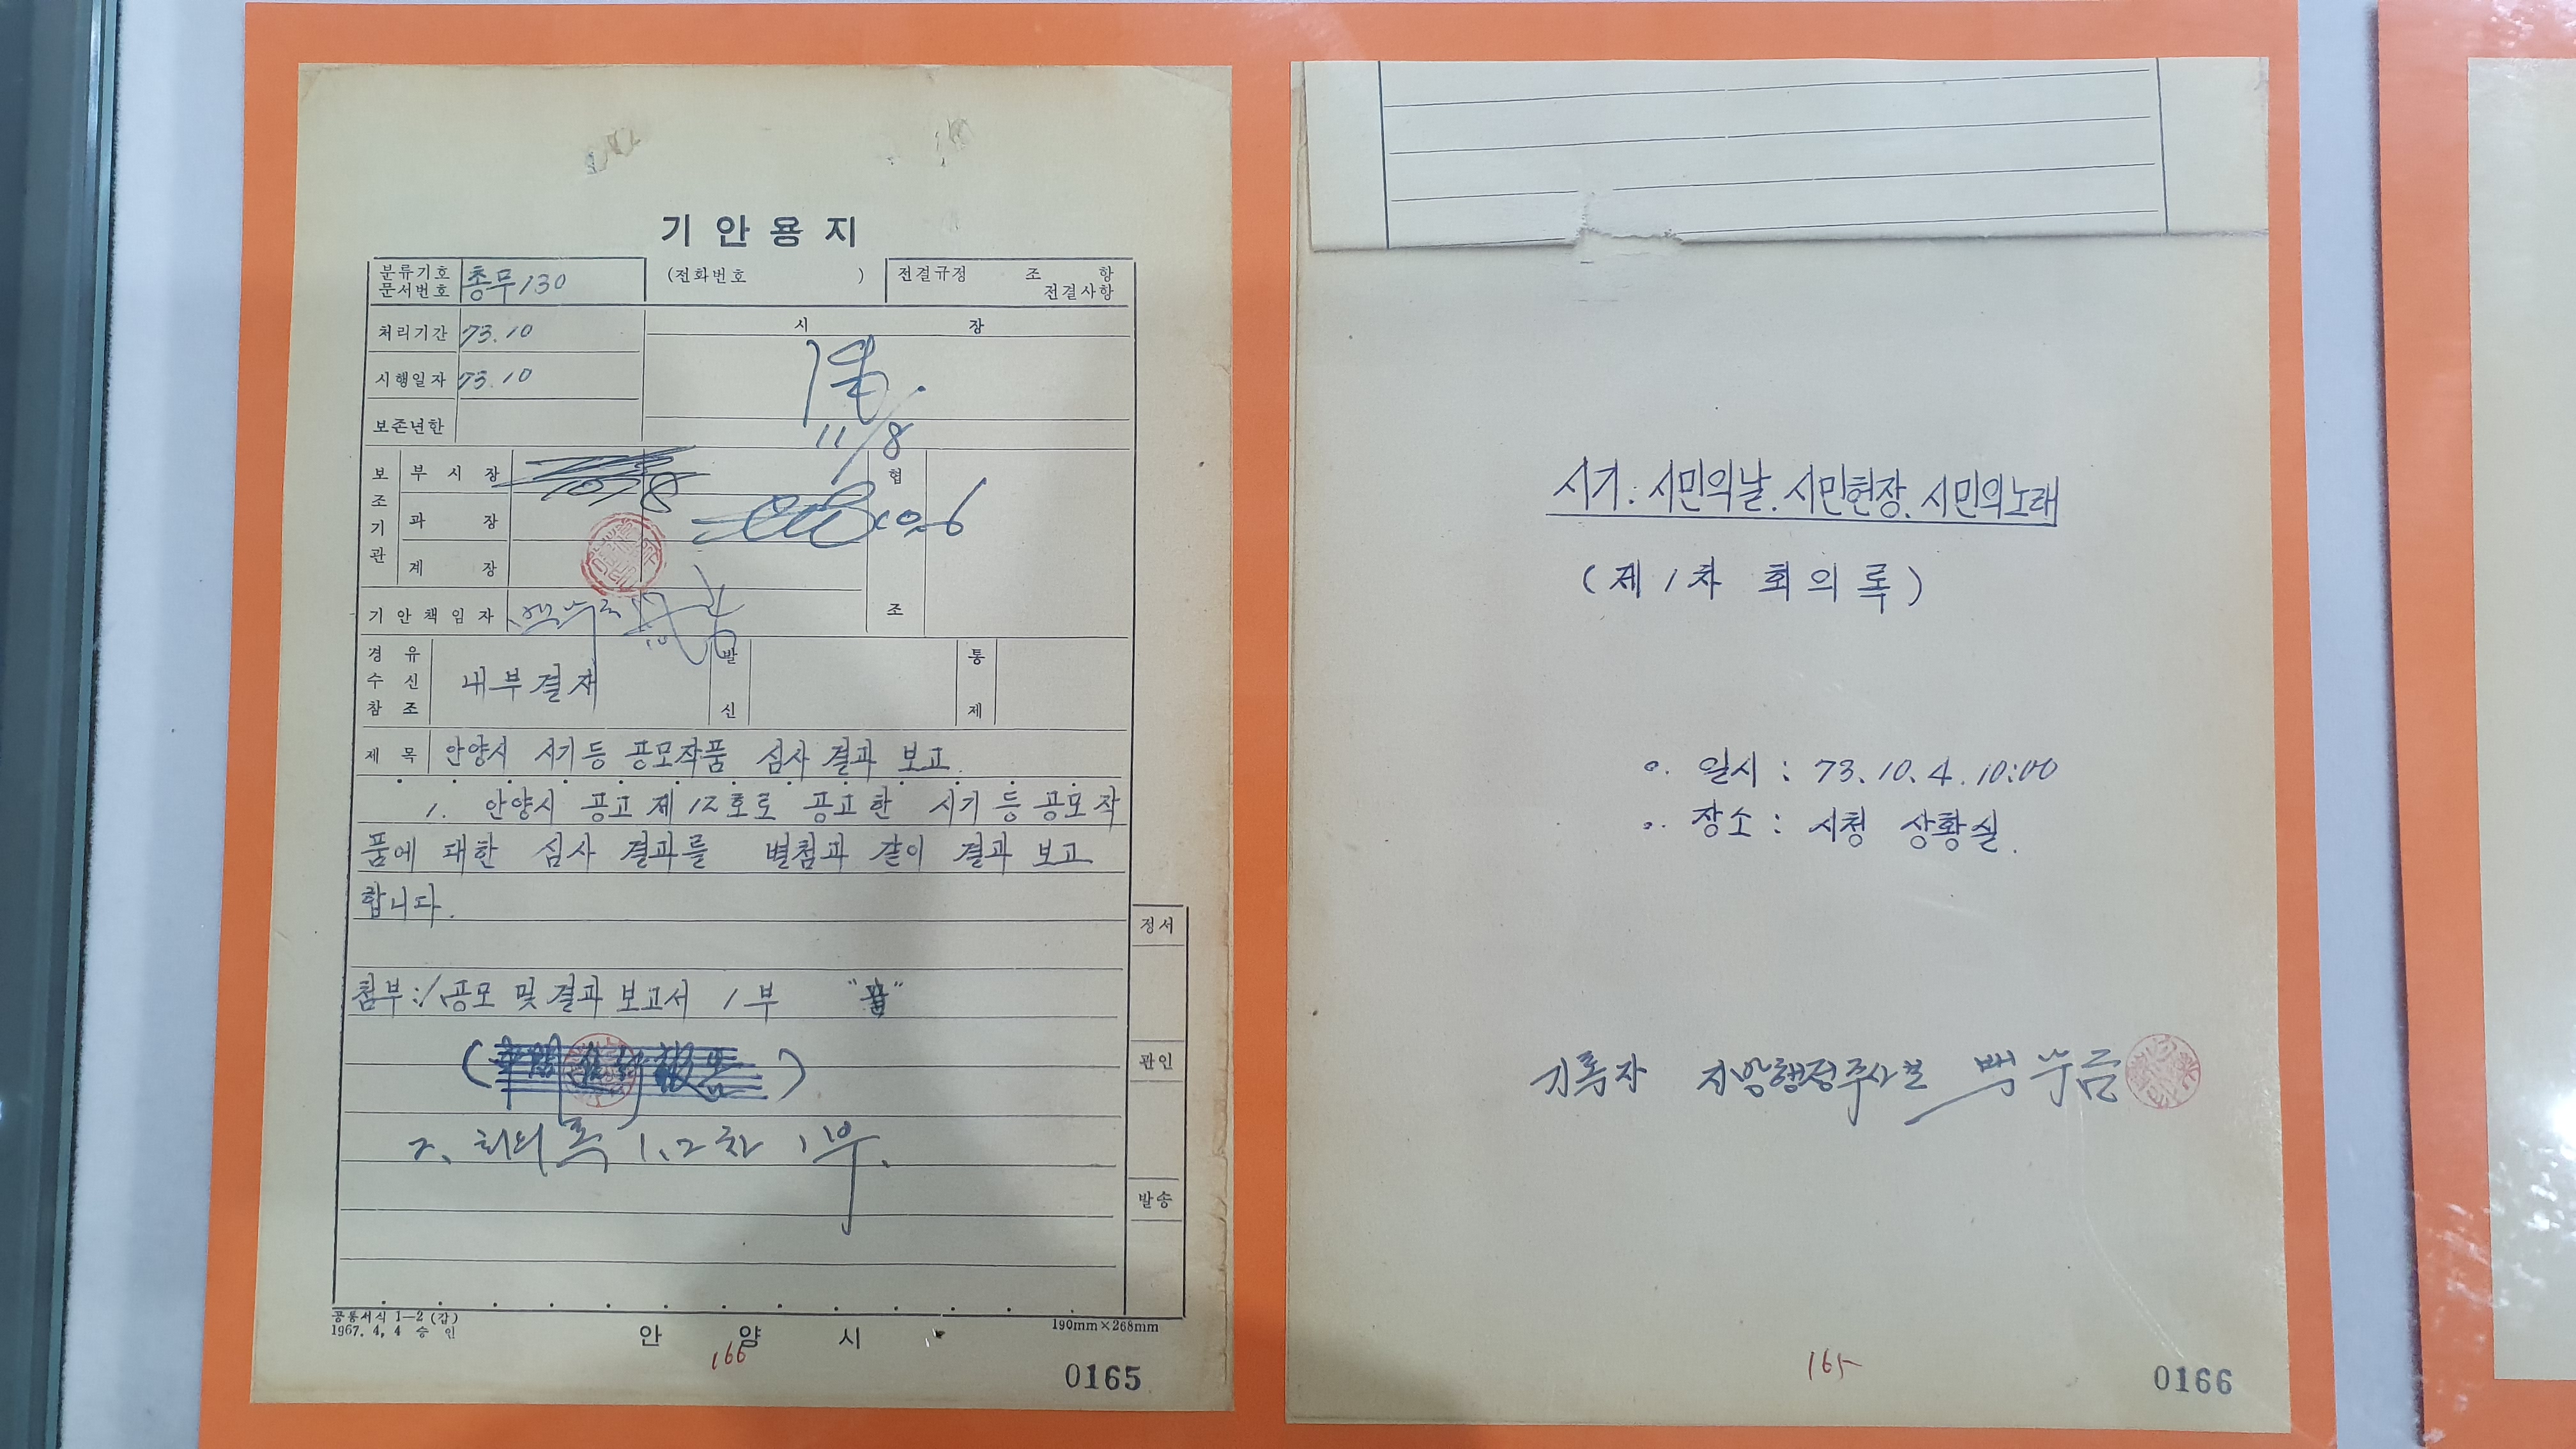 기안용지
분류기호 문서번호 총무130 (전화번호 ) 전결규정 조 항 전결사항
처리기간 73.10 시 장
시행일자 73.10
보존년한
11/8
보조기관 부시장 10/8 협조
과장 10.6
계장
기안책임자
경유 수신 참조 내부결재 발신 통제
제목 안양시 시기등 공모작품 심사 결과 보고.
1. 안양시 공고 제12호로 공고한 시기 등 공모작
품에 대한 심사 결과를 별첨과 같이 결과 보고
합니다.
정서
첨부:1.공모 및 결과 보고서 1부 "끝"
관인
2. 회의록 1.2차 1부.
발송
공통서식 1—2 (갑)
1967. 4. 4 승인
안양시
190mm×268mm
166
0165
시기. 시민의날. 시민헌장. 시민의노래
(제1차 회의록)
o. 일시 : 73.10.4.10:00
o. 장소 : 시청 상황실.
기록자 지방행정주사보
165
0166